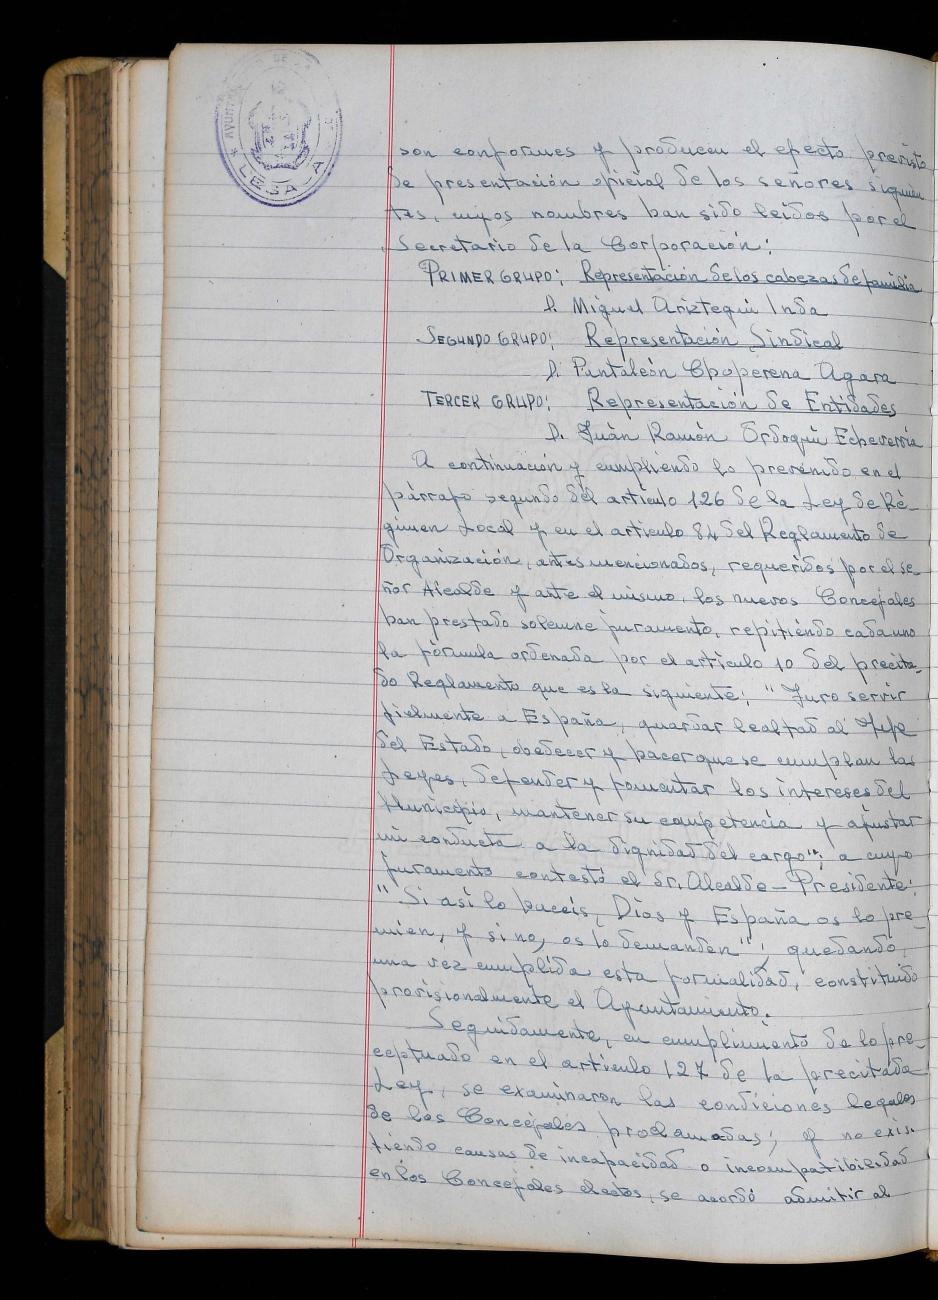 LESACA
son conformes y producen el efecto previsto
de presentación oficial de los señores siguien
tes, cuyos nombres han sido leidos por el
Secretario de la Corporación:
PRIMER GRUPO: Representación de los cabezas de familia
D. Miguel Ariztegui Inda
SEGUNDO GRUPO: Representación Sindical
D. Pantaleón Choperena Agara
TERCER GRUPO: Representación de Entidades
D. Juàn Ramón Ordoqui Echeverria
A continuación y cumpliendo lo prevenido en el
párrafo segundo del articulo 126 de la Ley de Ré-
gimen Local y en el articulo 84 del Reglamento de
Organización, antes mencionados, requeridos por el se-
ñor Alcalde y ante el mismo, los nuevos Concejales
han prestado solemne juramento, repitiendo cada uno
la fórmula ordenada por el articulo 10 del precita-
do Reglamento que es la siguiente: "Juro servir
fielmente a España, guardar lealtad al Jefe
del Estado, obedecer y hacer que se cumplan las
Leyes, defender y fomentar los intereses del
Municipio, mantener su competencia y ajustar
mi conducta a la dignidad del cargo"; a cuyo
juramento contestó el Sr. Alcalde-Presidente:
"Si así lo haceis, Dios y España os lo pre-
mien, y si no, os lo demanden"; quedando,
una vez cumplida esta formalidad, constituido
provisionalmente el Ayuntamiento.
Seguidamente, en cumplimiento de lo pre-
ceptuado en el articulo 127 de la precitada
Ley, se examinaron las condiciones legales
de los Concejales proclamados; y no exis-
tiendo causas de incapacidad o incompatibilidad
en los Concejales electos, se acordó admitir al